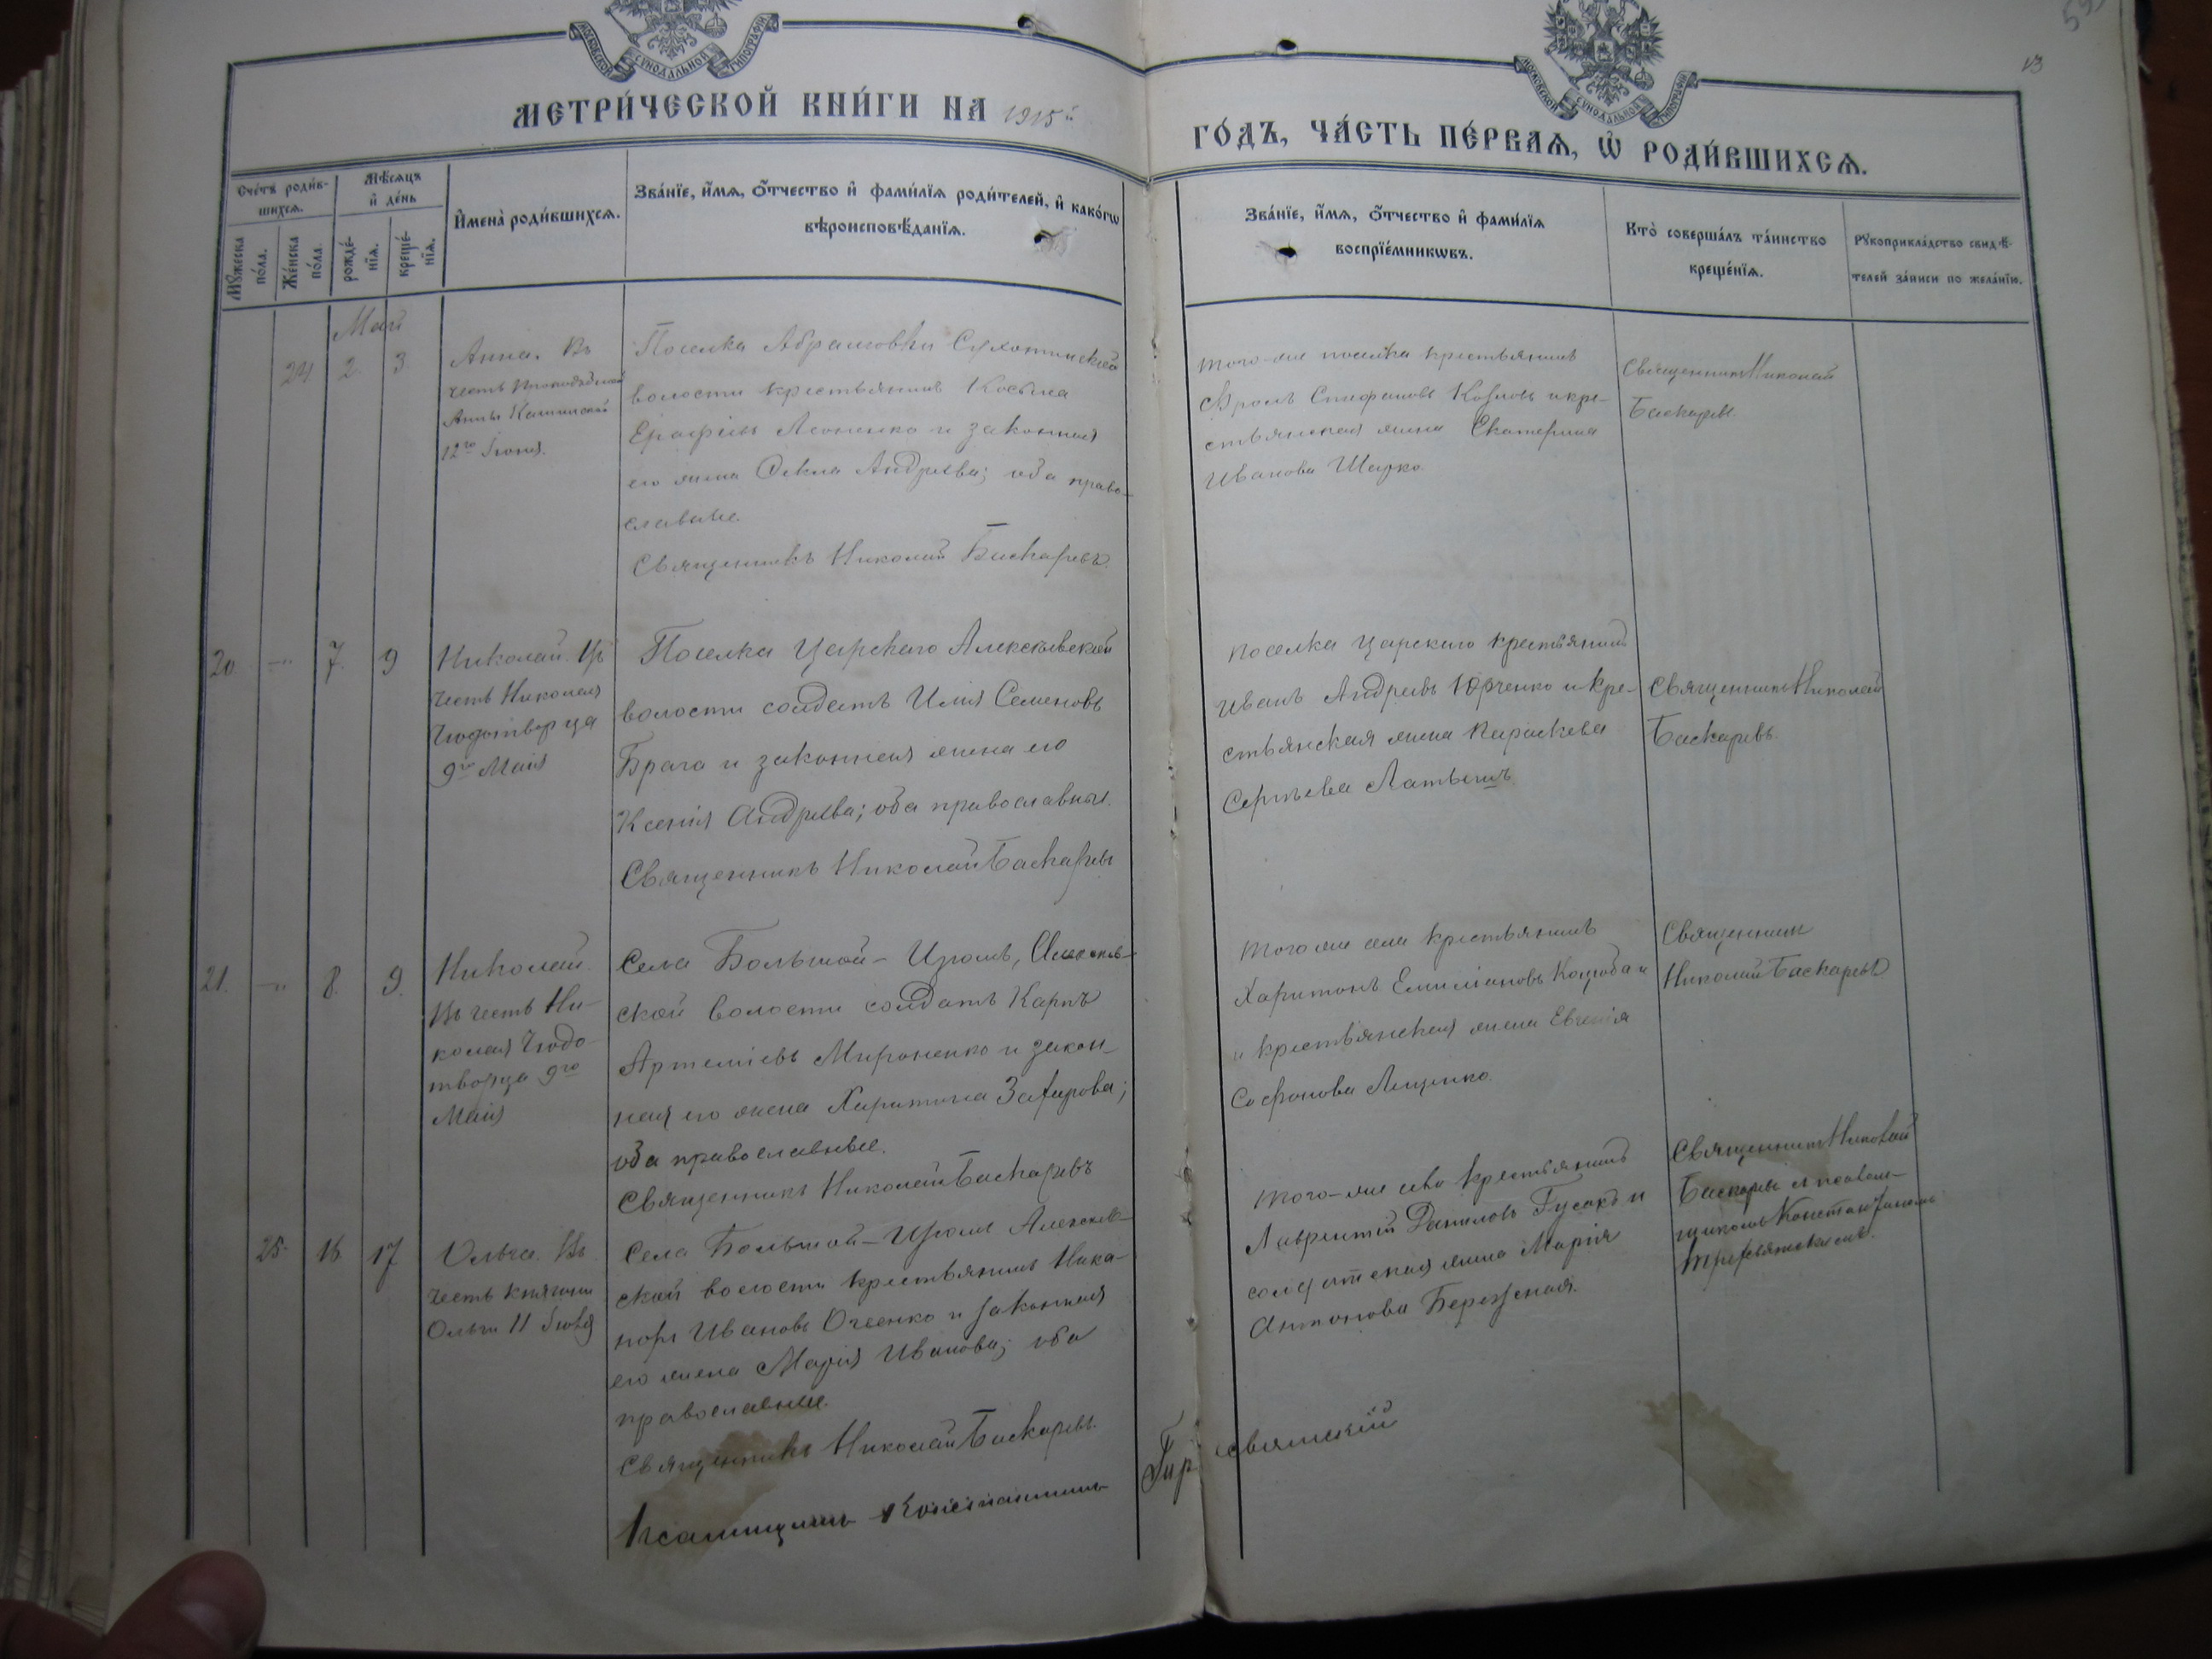 МОСКОВСКОЙ СѴНОДАЛЬНОЙ ТИПОГРАФІИ
МОСКОВСКОЙ СѴНОДАЛЬНОЙ ТИПОГРАФІИ
13
МЕТРИ́ЧЕСКОЙ КНИ́ГИ НА 1915й
ГО́ДЪ, ЧА́СТЬ ПЕ́РВАѦ, Ѡ҆ РОДИ́ВШИХСѦ.
Сче́тъ роди́в-
шихсѧ.
Мѣ́сѧцъ
и҆ де́нь
Мꙋ́жеска
по́ла.
Же́нска
по́ла.
рожде́-
нїѧ.
креще́-
нїѧ.
И҆мена̀ роди́вшихсѧ.
Зва́нїе, и҆́мѧ, ѻ҆́тчество и҆ фами́лїѧ роди́телей, и҆ како́гѡ
вѣроисповѣ́данїѧ.
Зва́нїе, и҆́мѧ, ѻ҆́тчество и҆ фами́лїѧ
воспрїе́мникѡвъ.
Кто̀ соверша́лъ та́инство
креще́нїѧ.
Рꙋкоприкла́дство свидѣ́-
телей за́писи по жела́нїю.
Май
24 2. 3.
Анна. Въ
честь преподобной
Анны Кашинской
12го Іюня.
Поселка Абрамовки Сухотинской
волости крестьянинъ Косьма
Ерофіевъ Леоненко и законная
его жена Ѳекла Андреева; оба право-
славные.
Священникъ Николай Баскаревъ.
того-же поселка крестьянинъ
Фролъ Стефановъ Козловъ и кре-
стьянская жена Екатерина
Иванова Шадко.
Священникъ Николай
Баскаревъ.
20 —"— 7. 9
Николай. Въ
честь Николая
Чудотворца
9го Мая
Поселка Царскаго Алексѣевской
волости солдатъ Илія Семеновъ
Брага и законная жена его
Ксенія Андреева; оба православные.
Священникъ Николай Баскаревъ
поселка Царскаго крестьянинъ
Иванъ Андреевъ Юрченко и кре-
стьянская жена Параскева
Сергѣева Латышъ.
Священникъ Николай
Баскаревъ.
21. —"— 8. 9.
Николай.
Въ честь Ни-
колая Чудо-
творца 9го
Мая
Села Большой-Уромъ, Алексѣев-
ской волости солдатъ Карпъ
Артеміевъ Мироненко и закон-
ная его жена Харитина Захарова;
оба православные.
Священникъ Николай Баскаревъ
того же села крестьянинъ
Харитонъ Емиліановъ Коцюба и
и крестьянская жена Евгенія
Софронова Лященко.
Священникъ
Николай Баскаревъ
25. 16 17
Ольга. Въ
честь княгини
Ольги 11 Іюля
Села Большой-Уромъ Алексѣев-
ской волости крестьянинъ Ника-
норъ Ивановъ Овсенко и законная
его жена Марія Иванова; оба
православные.
Священникъ Николай Баскаревъ.
Псаломщикъ Константинъ
того-же села крестьянинъ
Лаврентій Даниловъ Гусакъ и
солдатская жена Марія
Антонова Бережная.
Священникъ Николай
Баскаревъ съ псалом-
щикомъ Константиномъ